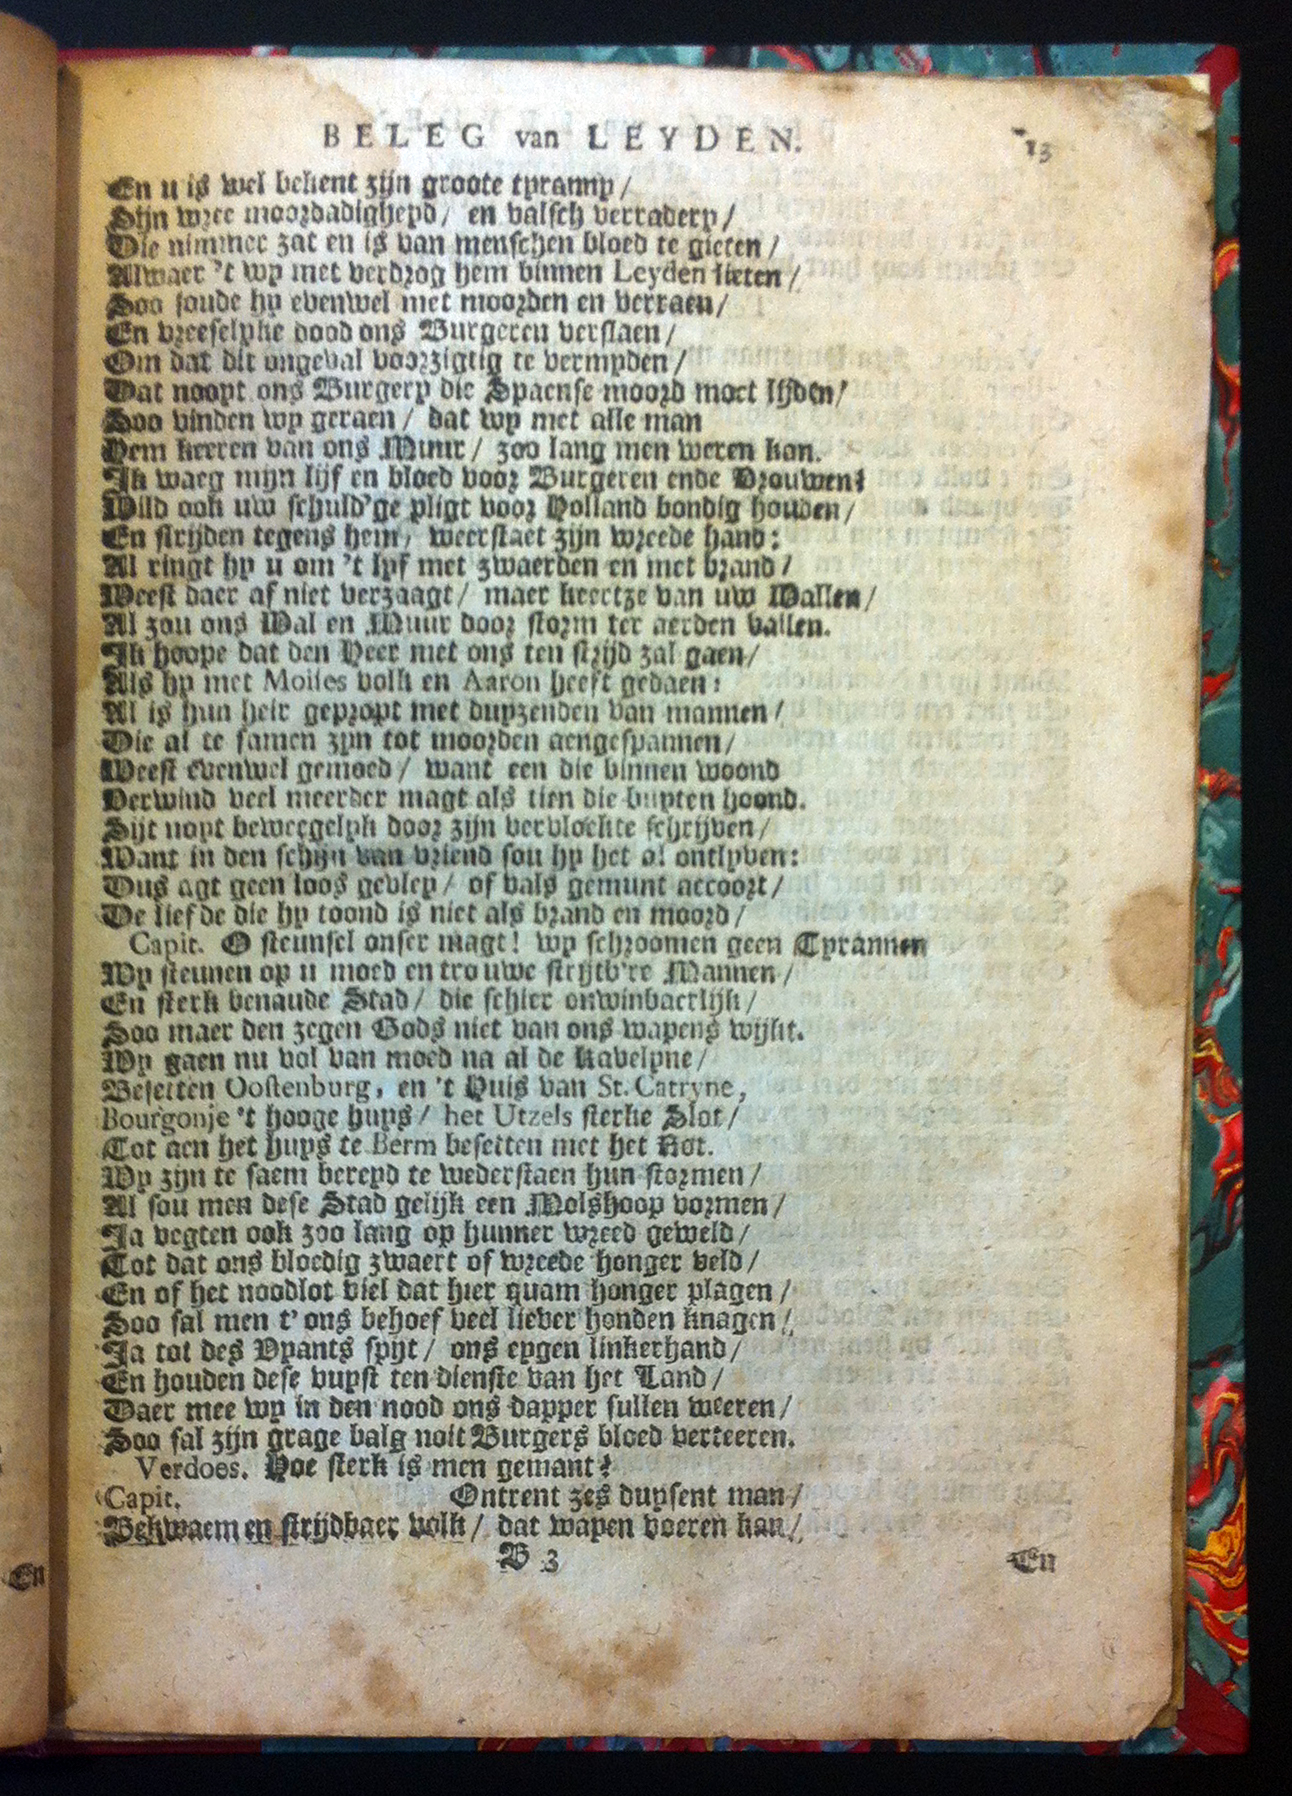 BELEG van LEYDEN. 13
En u is wel bekent zijn groote tyranny /
Sijn wree moordadigheyd / en valsch verradery /
Die nimmer zat en is van menschen bloed te gieten /
Alwaer 't wy met verdrog hem binnen Leyden lieten /
Soo soude hy evenwel met moorden en verraen /
En vreeselyke dood ons Burgeren verslaen /
Om dat dit ongeval voorzigtig te vermyden /
Dat noopt ons Burgery die Spaense moord moet lijden /
Soo vinden wy geraen / dat wy met alle man
Hem keeren van ons Muur / zoo lang men weren kan.
Ik waeg mijn lijf en bloed voor Burgeren ende Vrouwen!
Wild ook uw schuld'ge pligt voor Holland bondig houden /
En strijden tegens hem / weerstaet zijn wreede hand:
Al ringt hy u om 't lyf met zwaerden en met brand /
Weest daer af niet verzaagt / maer keertze van uw Wallen /
Al zou ons Wal en Muur door storm ter aerden vallen.
Ik hoope dat den Heer met ons ten strijd zal gaen /
Als hy met Moises volk en Aaron heeft gedaen:
Al is hun heir gepropt met duyzenden van mannen /
Die al te samen zyn tot moorden aengespannen /
Weest evenwel gemoed / want een die binnen woond
Verwind veel meerder magt als tien die buyten hoond.
Sijt noyt beweegelyk door zijn vervloekte schrijven /
Want in den schijn van vriend sou hy het al ontlyven:
Dus agt geen loos gevley / of vals gemunt accoort /
De liefde die hy toond is niet als brand en moord /
Capit. O steunsel onser magt! wy schroomen geen Tyrannen
Wy steunen op u moed en trouwe strijtb're Mannen /
En sterk benaude Stad / die schier onwinbaerlijk /
Soo maer den zegen Gods niet van ons wapens wijkt.
Wy gaen nu vol van moed na al de kavelyne /
Besetten Oostenburg, en 't Huis van St. Catryne,
Bourgonje 't hooge huys / het Utzels sterke Slot /
Tot aen het huys te Berm besetten met het Rot.
Wy zijn te saem bereyd te wederstaen hun stormen /
Al sou men dese Stad gelijk een Molshoop vormen /
Ja vegten ook zoo lang op hunner wreed geweld /
Tot dat ons bloedig zwaert of wreede honger veld /
En of het noodlot viel dat hier quam honger plagen /
Soo sal men t'ons behoef veel liever honden knagen /
Ja tot des Vyants spijt / ons eygen linkerhand /
En houden dese vuyst ten dienste van het Land /
Daer mee wy in den nood ons dapper sullen weeren /
Soo sal zijn grage balg noit Burgers bloed verteeren.
Verdoes. Hoe sterk is men gemant?
Capit. Ontrent zes duysent man /
Bekwaem en strijdbaer volk / dat wapen voeren kan /
B 3 En
En